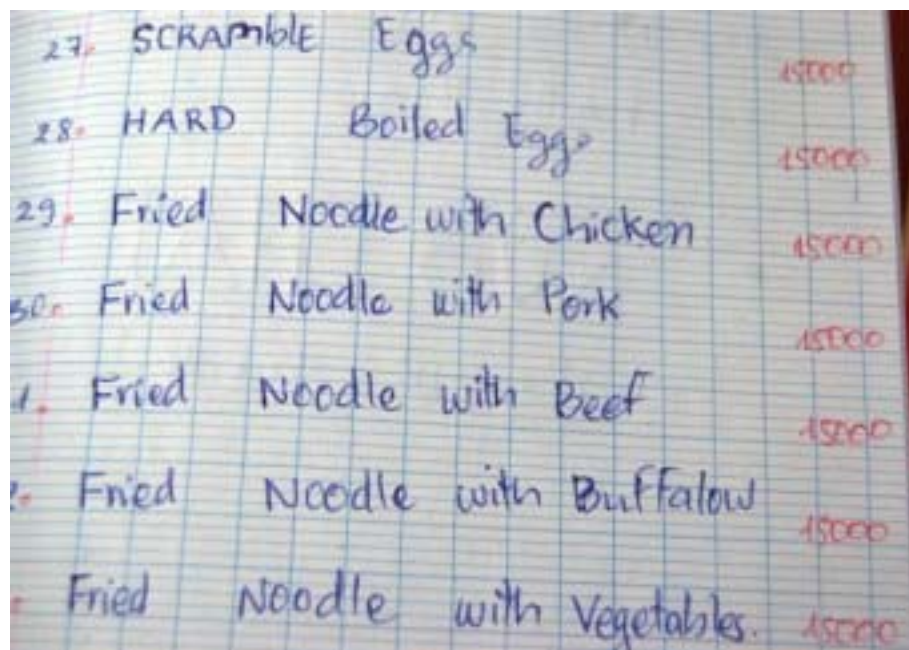 27. SCRAMblE Eggs 15000
28. HARD Boiled Eggs 15000
29. Fried Noodle with Chicken 15000
30. Fried Noodle with Pork 15000
1. Fried Noodle with Beef 15000
Fried Noodle with Buffalow 15000
Fried Noodle with Vegetables. 15000